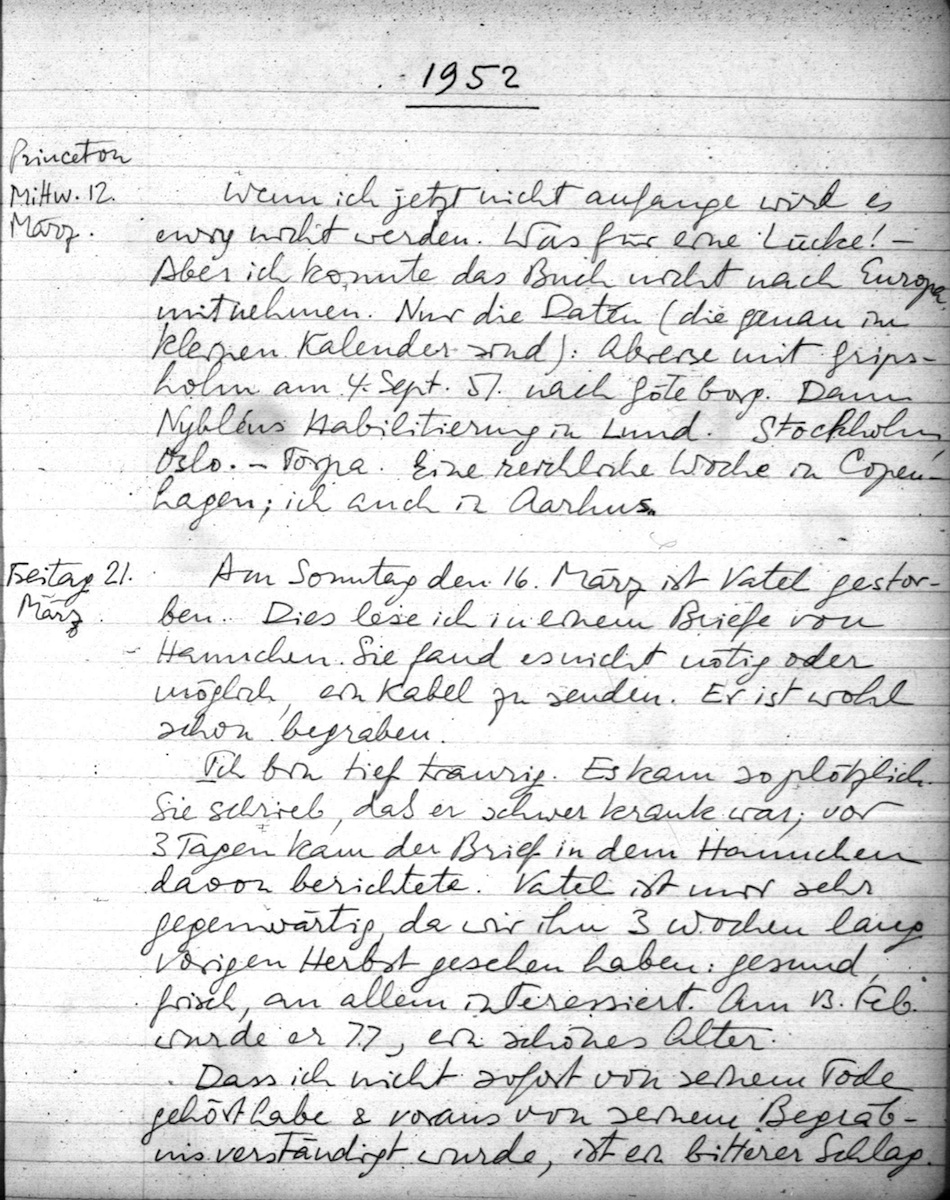 1952
Princeton
Mittw. 12.
März.
Wenn ich jetzt nicht anfange wird es
ewig nicht werden. Was für eine Lücke! –
Aber ich konnte das Buch nicht nach Europa
mitnehmen. Nur die Daten (die genau im
kleinen Kalender sind): Abreise mit Grips-
holm am 4. Sept. 51. nach Göteborg. Dann
Nybléns Habilitierung in Lund. Stockholm,
Oslo. – Torpa. Eine reichliche Woche in Copen-
hagen; ich auch in Aarhus.
Freitag 21.
März.
Am Sonntag den 16. März ist Vatel gestor-
ben. Dies lese ich in einem Briefe von
Hannchen. Sie fand es nicht nötig oder
möglich, ein Kabel zu senden. Er ist wohl
schon begraben.
Ich bin tief traurig. Es kam so plötzlich.
Sie schrieb, daß er schwer krank war; vor
3 Tagen kam der Brief in dem Hannchen
davon berichtete. Vatel ist mir sehr
gegenwärtig, da wir ihn 3 Wochen lang
vorigen Herbst gesehen haben: gesund,
frisch, an allem interessiert. Am 13. Feb.
wurde er 77, ein schönes Alter.
Dass ich nicht sofort von seinem Tode
gehört habe & voraus von seinem Begräb-
nis verständigt wurde, ist ein bitterer Schlag.